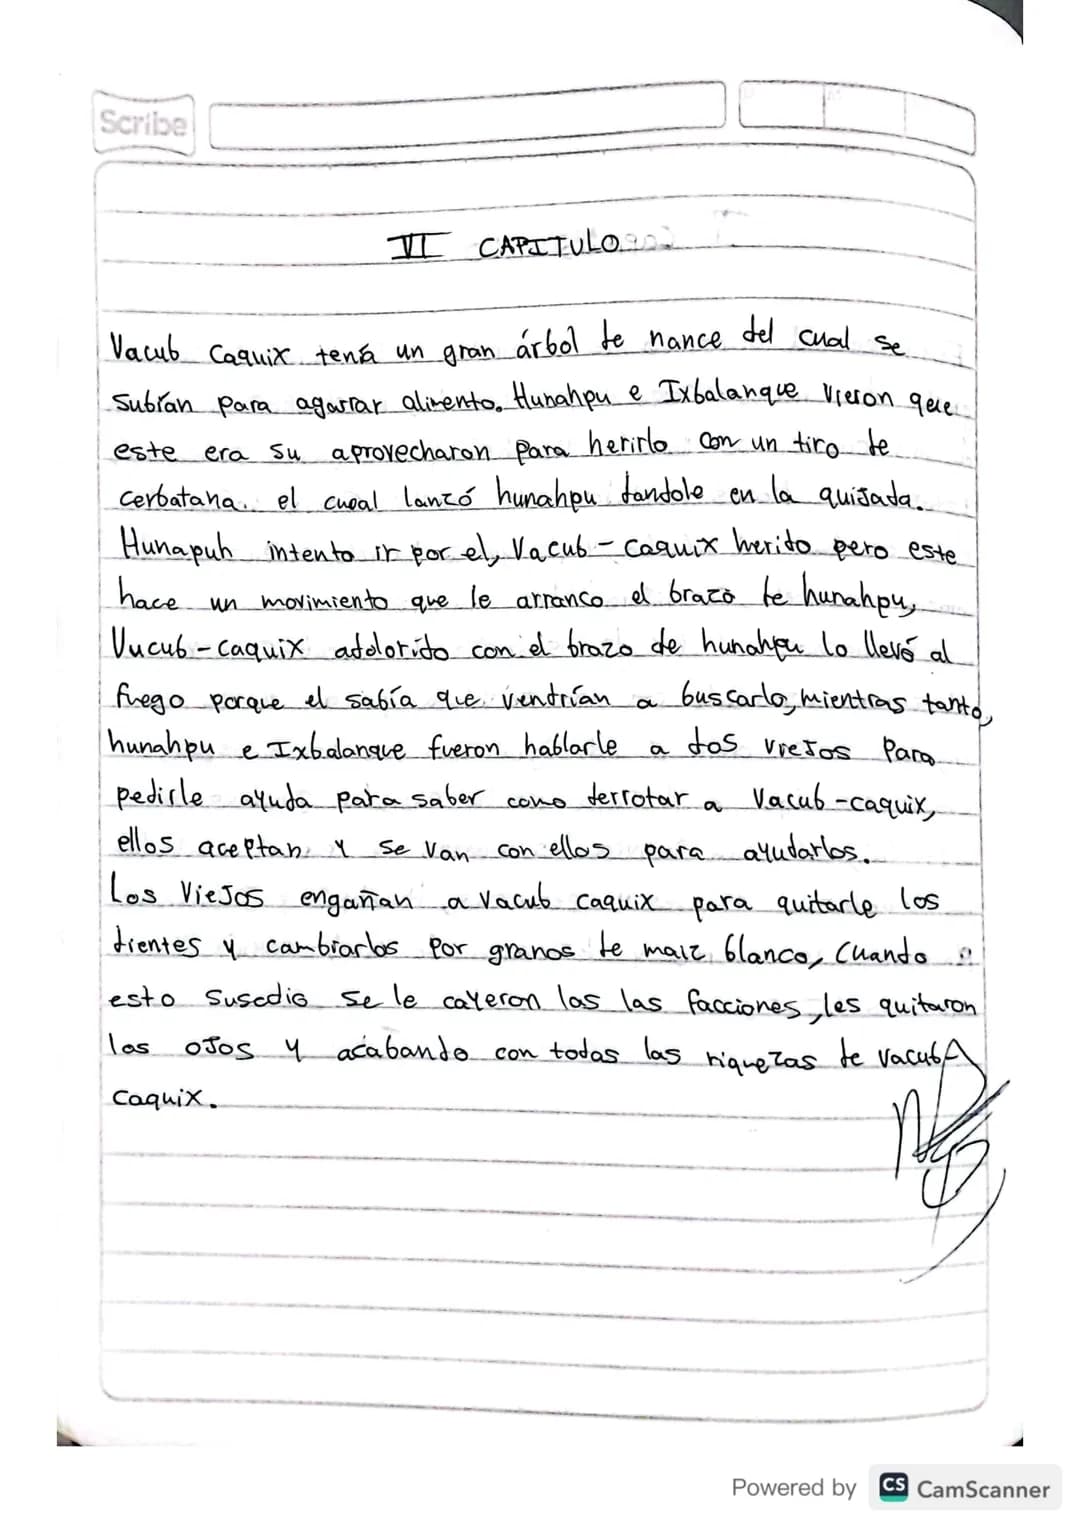 Scribe
VI CAPITULO
Vacub Caquix tená un gran árbol de nance del cual se
subían para agarrar alimento. Hunahpu e Ixbalanque vieron que
este era su aprovecharon para herirlo con un tiro de
cerbatana. el cual lanzó hunahpu dandole en la quijada.
Hunapuh intento ir por el, Vacub-caquix herido pero este
hace un movimiento que le arranco el brazo de hunahpu,
Vucub-caquix adolorido con el brazo de hunahpu lo llevó al
fuego porque el sabía que vendrían a buscarlo, mientras tanto,
hunahpu e Ixbalanque fueron hablarle a dos viejos para
pedirle ayuda para saber como derrotar a Vacub-caquix,
ellos aceptan y se van con ellos para ayudarlos.
Los Viejos engañan a vacub caquix para quitarle los
dientes y cambiarlos por granos de maiz blanco, Cuando
esto susedio se le cayeron las las facciones, les quitaron
los ojos y acabando con todas las riquezas de vacub
caquix.
Powered by CS CamScanner